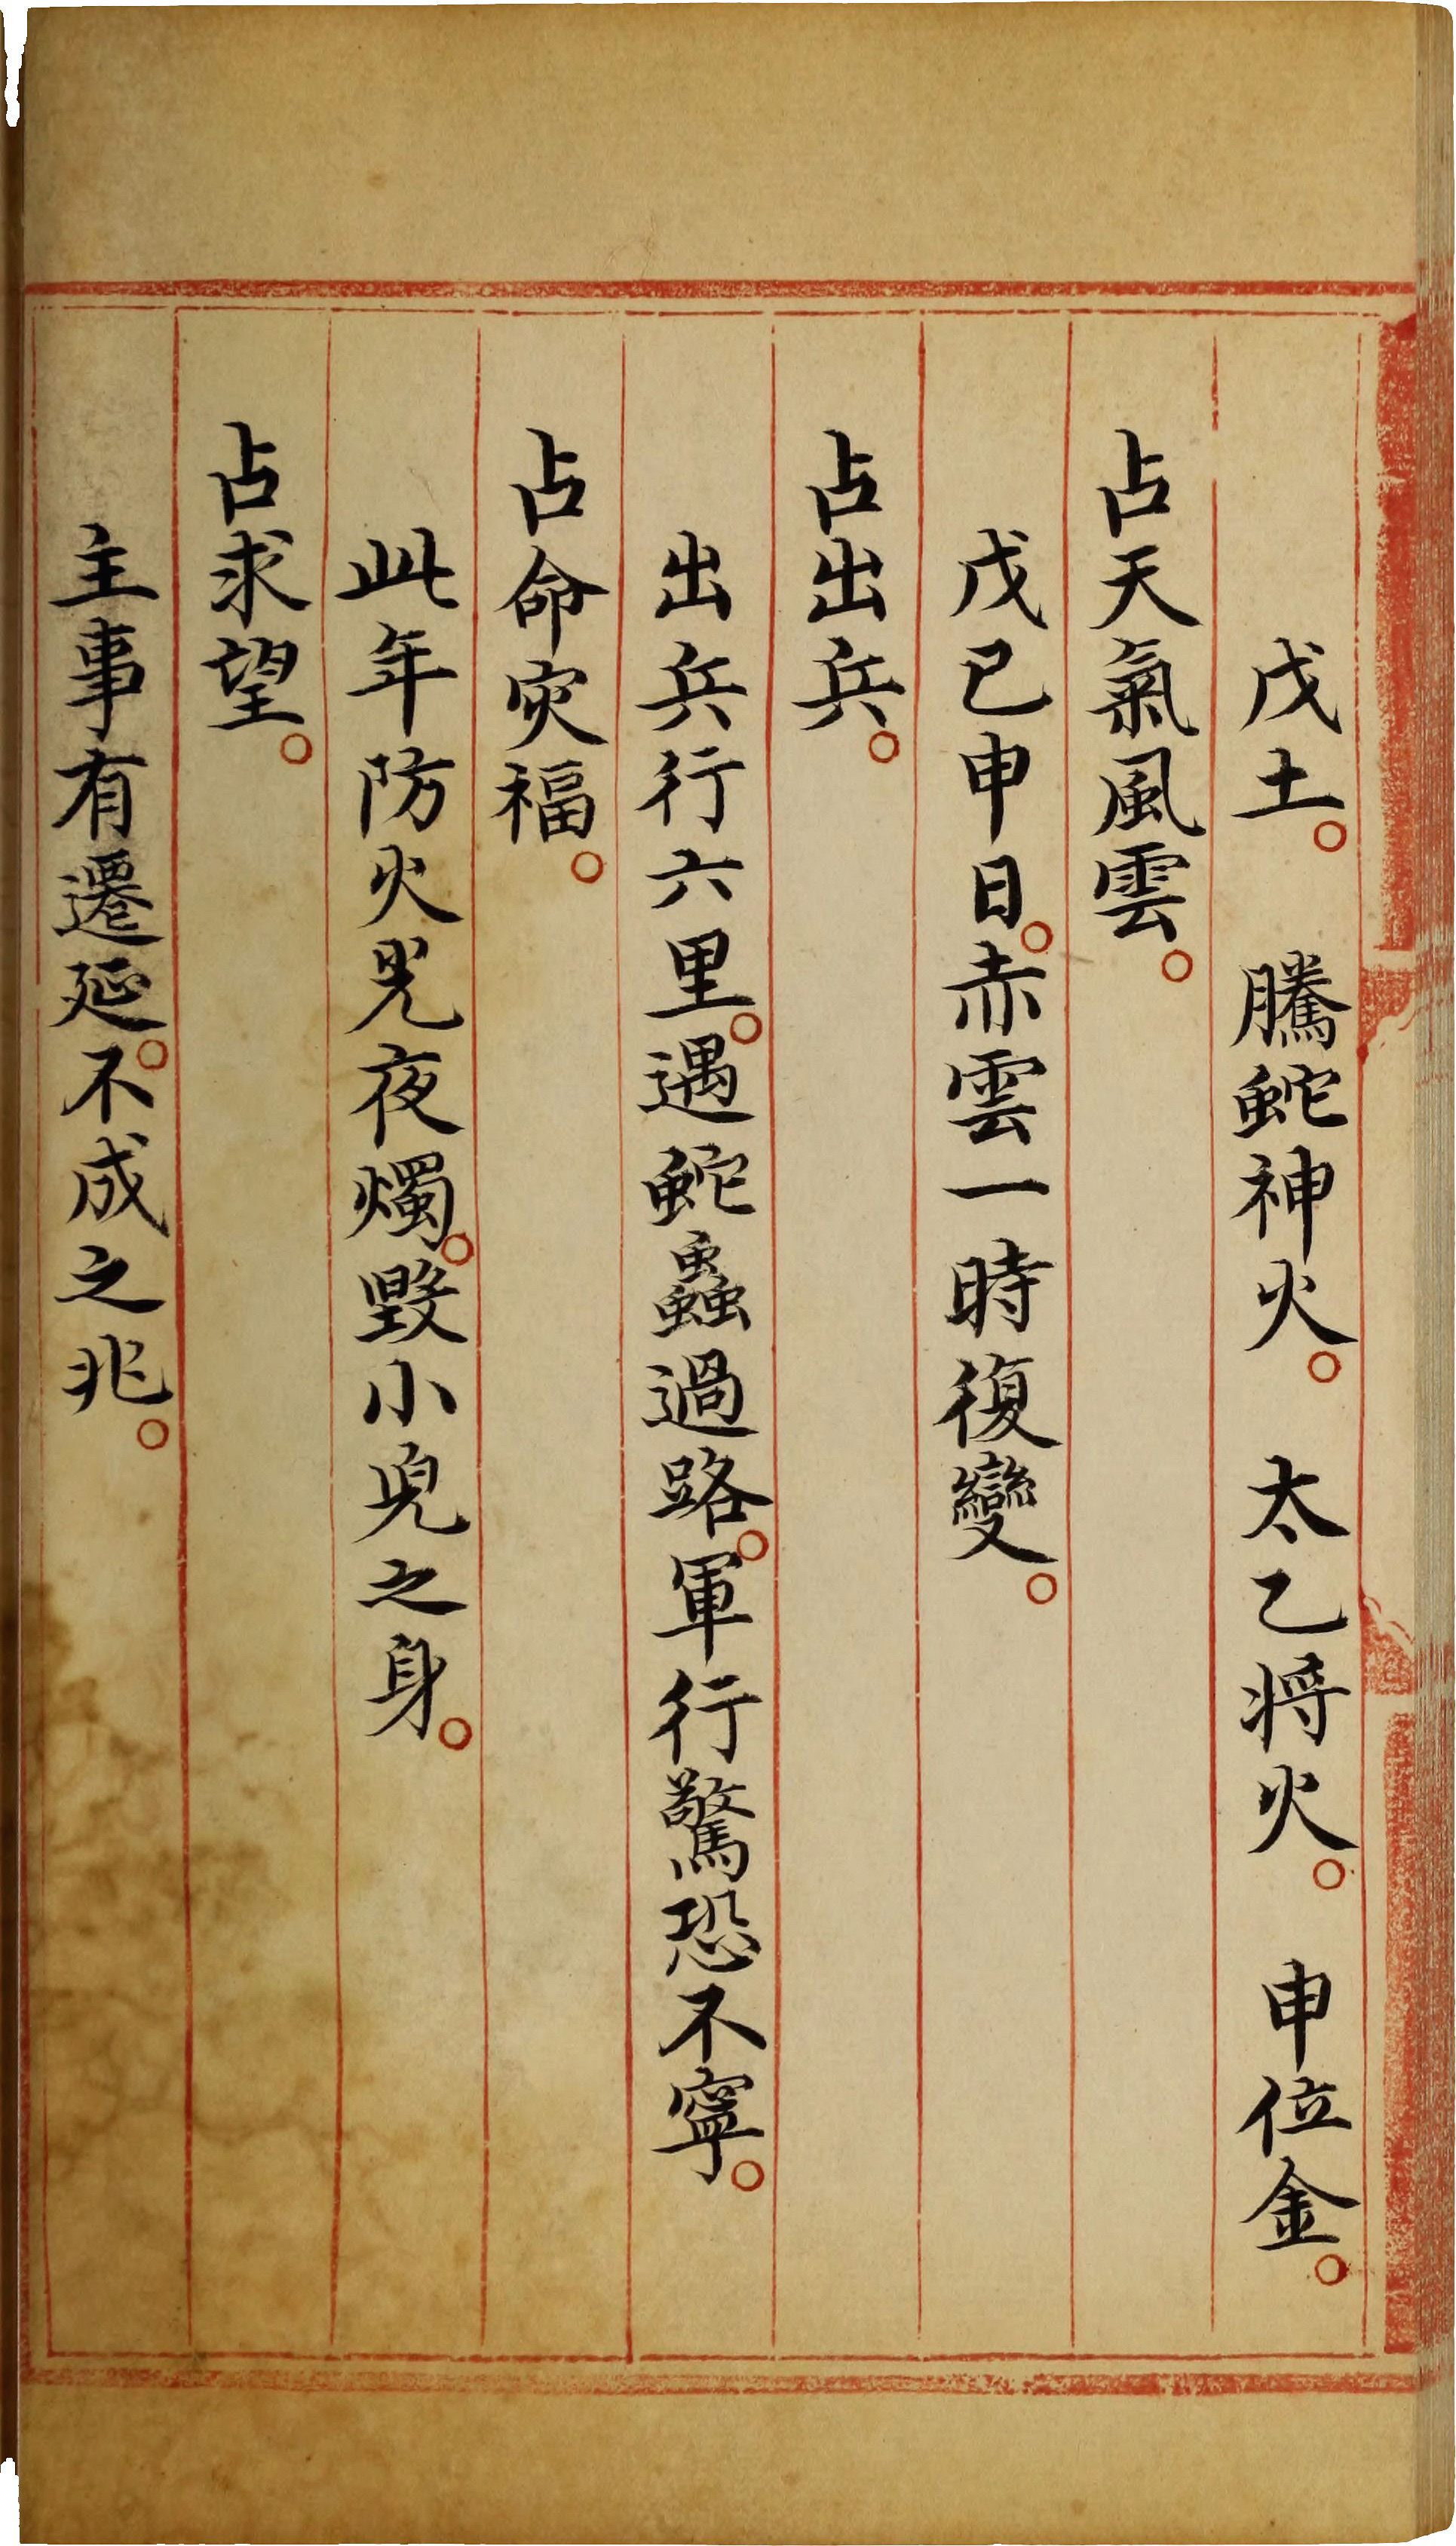 戊土。　騰蛇神火。　太乙將火。　申位金。
占天氣風雲。
戊巳申日。赤雲一時復變。
占出兵。
出兵行六里。遇蛇蟲過路。軍行驚恐不寧。
占命灾福。
此年防火光夜燭。毀小兒之身。
占求望。
主事有遷延。不成之兆。